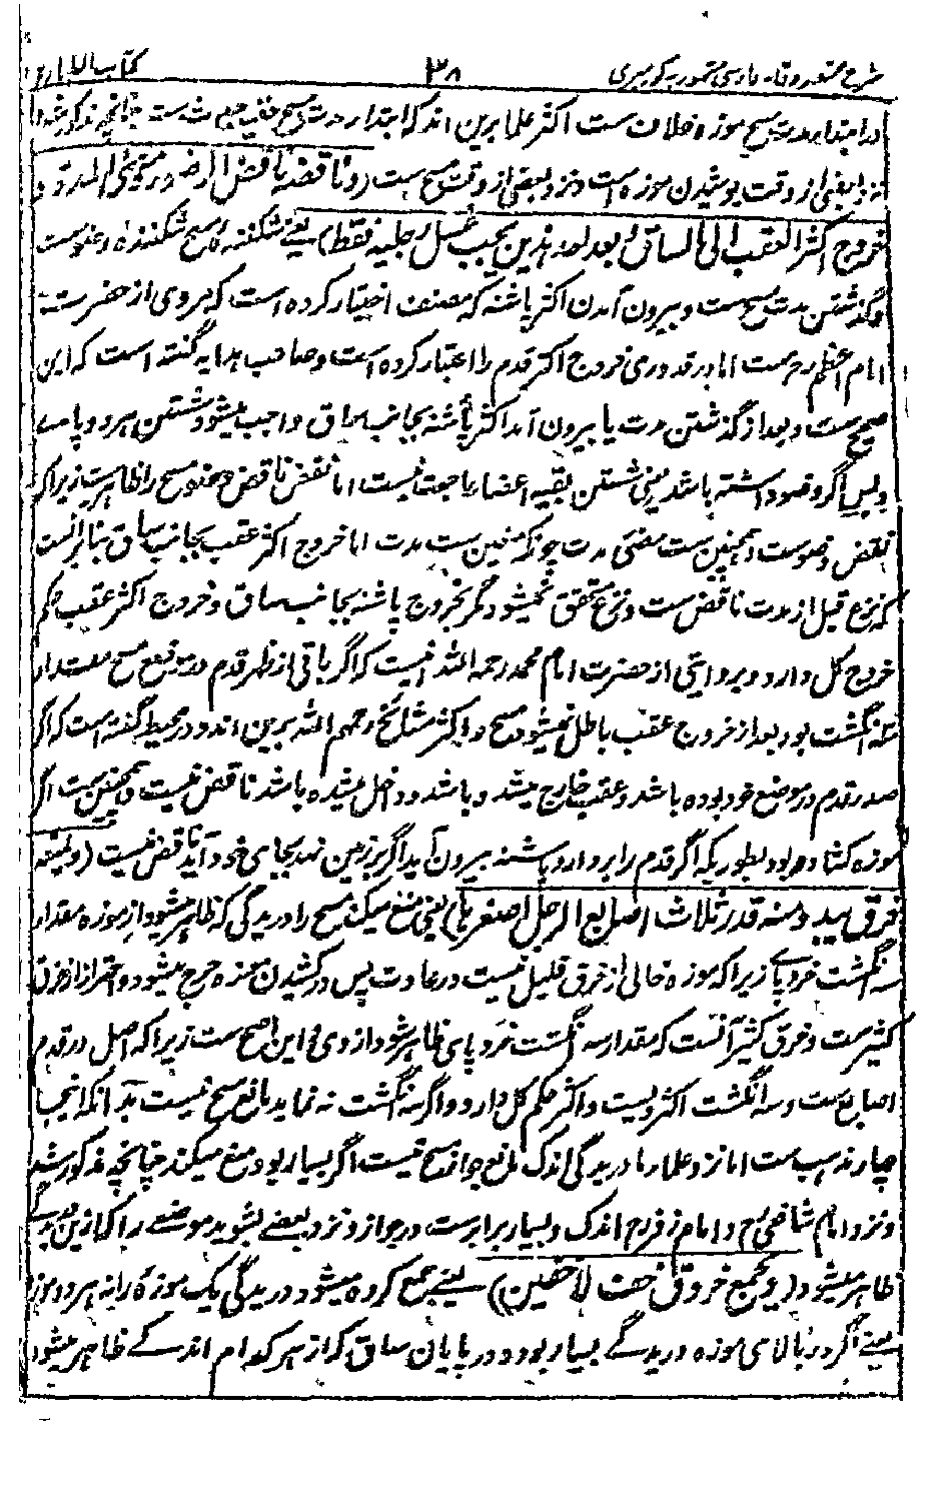 شرح مختصر وقایه فارسی مشهور به کور میری ۳۸ کتاب الطهارة
در ابتداء مدت مسح موزه خلاف ست اکثر علما برین اند که ابتداء مدت مسح عقیب حدث ست چنانچه مذکور شد
نزد بعضی از وقت پوشیدن موزه است و نزد بعضی از وقت مسح ست (و ناقضه ناقض الوضوء و مضی المدة و
خروج اکثر العقب الی الساق و بعد احد هذین یجب غسل رجلیه فقط) یعنے شکننده مسح شکننده وضوست
و گذشتن مدت مسح ست و بیرون آمدن اکثر پاشنه که مصنف اختیار کرده است که مروی از حضرت
امام اعظم رح ست اما در قدوری خروج اکثر قدم را اعتبار کرده است و صاحب هدایه گفته است که این
صحیح ست و بعد از گذشتن مدت یا بیرون آمدن اکثر پاشنه بجانب ساق واجب میشود شستن هر دو پا
و پس اگر وضو داشته باشد یعنی شستن بقیه اعضا حاجت نیست اما نقض ناقض وضو مسح را ظاهرست زیرا که
بعض وضوست و همچنین ست مضی مدت چونکه معین ست مدت اما خروج اکثر عقب بجانب ساق بنا برانست
که نزع قبل از مدت ناقض ست و نزع متحقق نمیشود مگر بخروج پاشنه بجانب ساق و خروج اکثر عقب حکم
خروج کل دارد و بروایتی از حضرت امام محمد رحمه الله اینست که اگر باقی از ظهر قدم در موضع مسح مقدار
سه انگشت بود بعد از خروج عقب باطل نمیشود مسح و اکثر مشائخ رحمهم الله برین اند و در محیط گفته است که اگر
صدر قدم در موضع خود بوده باشد و عقب خارج میشده باشد و داخل میشده باشد ناقض نیست و همچنین ست اگر
موزه کشاده بود بطوریکه اگر قدم را بردارد پاشنه بیرون آید اگر بر زمین نهد بجای خود آید ناقض نیست (و یمنعه
خرق یبدو منه قدر ثلاث اصابع الرجل اصغرها) یعنی منع میکند مسح را دریدگی که ظاهر میشود از موزه مقدار
سه انگشت خرد پا زیرا که موزه خالی از خرق قلیل نیست در عادت پس در کشیدن موزه حرج میشود و احتراز از خرق
کثیرست و خرق کثیر آنست که مقدار سه انگشت خرد پای ظاهر شود از وی و این اصح ست زیرا که اصل در قدم
اصابع ست و سه انگشت اکثر ویست و اکثر حکم کل دارد و اگر سه انگشت نه نماید مانع مسح نیست بدانکه اینجا
چار مذهب ست اما نزد علماء ما دریدگی اندک مانع جواز مسح نیست اگر بسیار بود منع میکند چنانچه مذکور شد
و نزد امام شافعی رح و امام زفر رح اندک و بسیار برابرست در جواز و نزد بعضے بشوید موضعے را که ازین
ظاهر میشود (و یجمع خروق خف لا خفین) یعنے جمع کرده میشود دریدگی یک موزه را نه هر دو موزه
یعنے اگر در بالای موزه دریدگے بسیار بود و در پایان ساق که از هر کدام اندکے ظاهر میشود